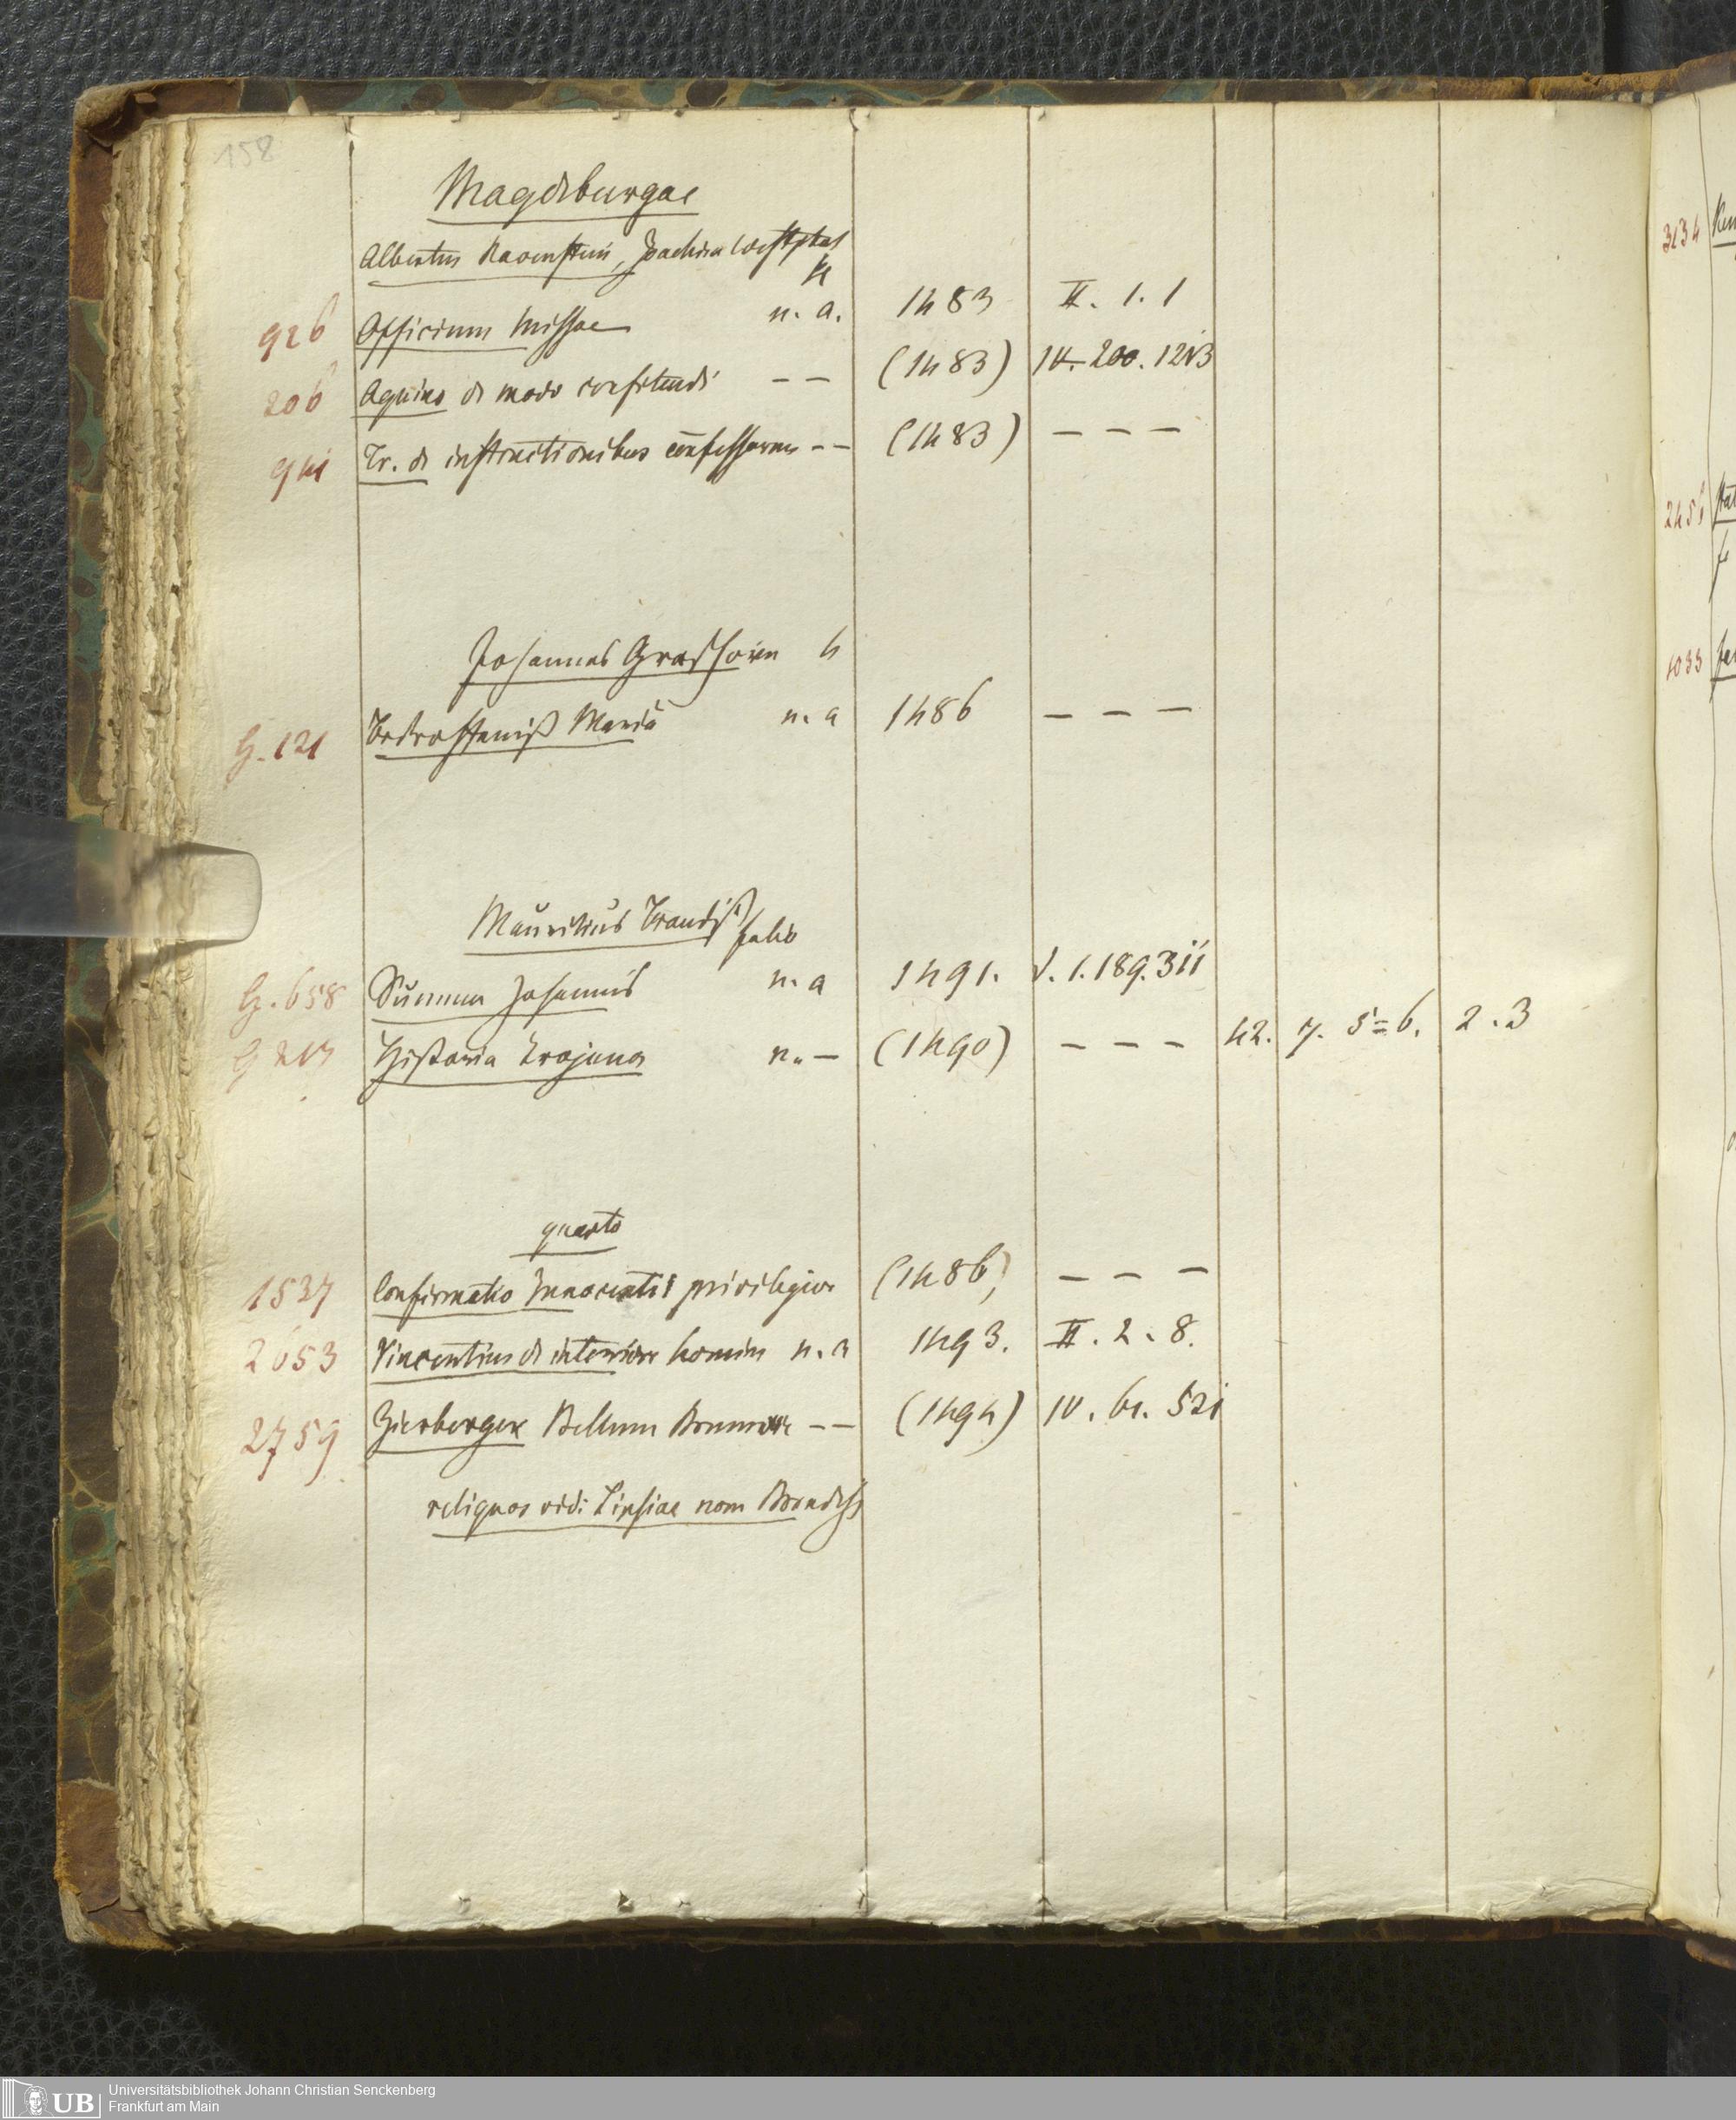 158
Magdeburgae
Albertus Ravenstein, Joachim Westphal
4
926 Officium Missae n. a. 1483 II. 1. 1
206 Aquino de modo confitendi - - (1483) IV. 200. 1213
941 Tr. de instructionibus confessorum - - (1483) - - -
Johannes Grashove 4
G. 121 Bedrofteniß Mariä n. a 1486 - - -
Mauritius Brandiß
folio
G. 658 Summa Johannis n. a 1491. V. 1. 189. 311
G 213 Historia Trojana n. - (1490) - - - 42. 7. 5=6. 2.3
quarto
1527 Confirmatio Innocentii privilegior (1486) - - -
2653 Vincentius de interiore homine n. a 1493. II. 2. 8.
2759 Bellum - - (1494) IV. 61. 521
reliquos vid: Lipsiae nom Brandiß
3134
245
1033
Universitätsbibliothek Johann Christian Senckenberg
UB Frankfurt am Main